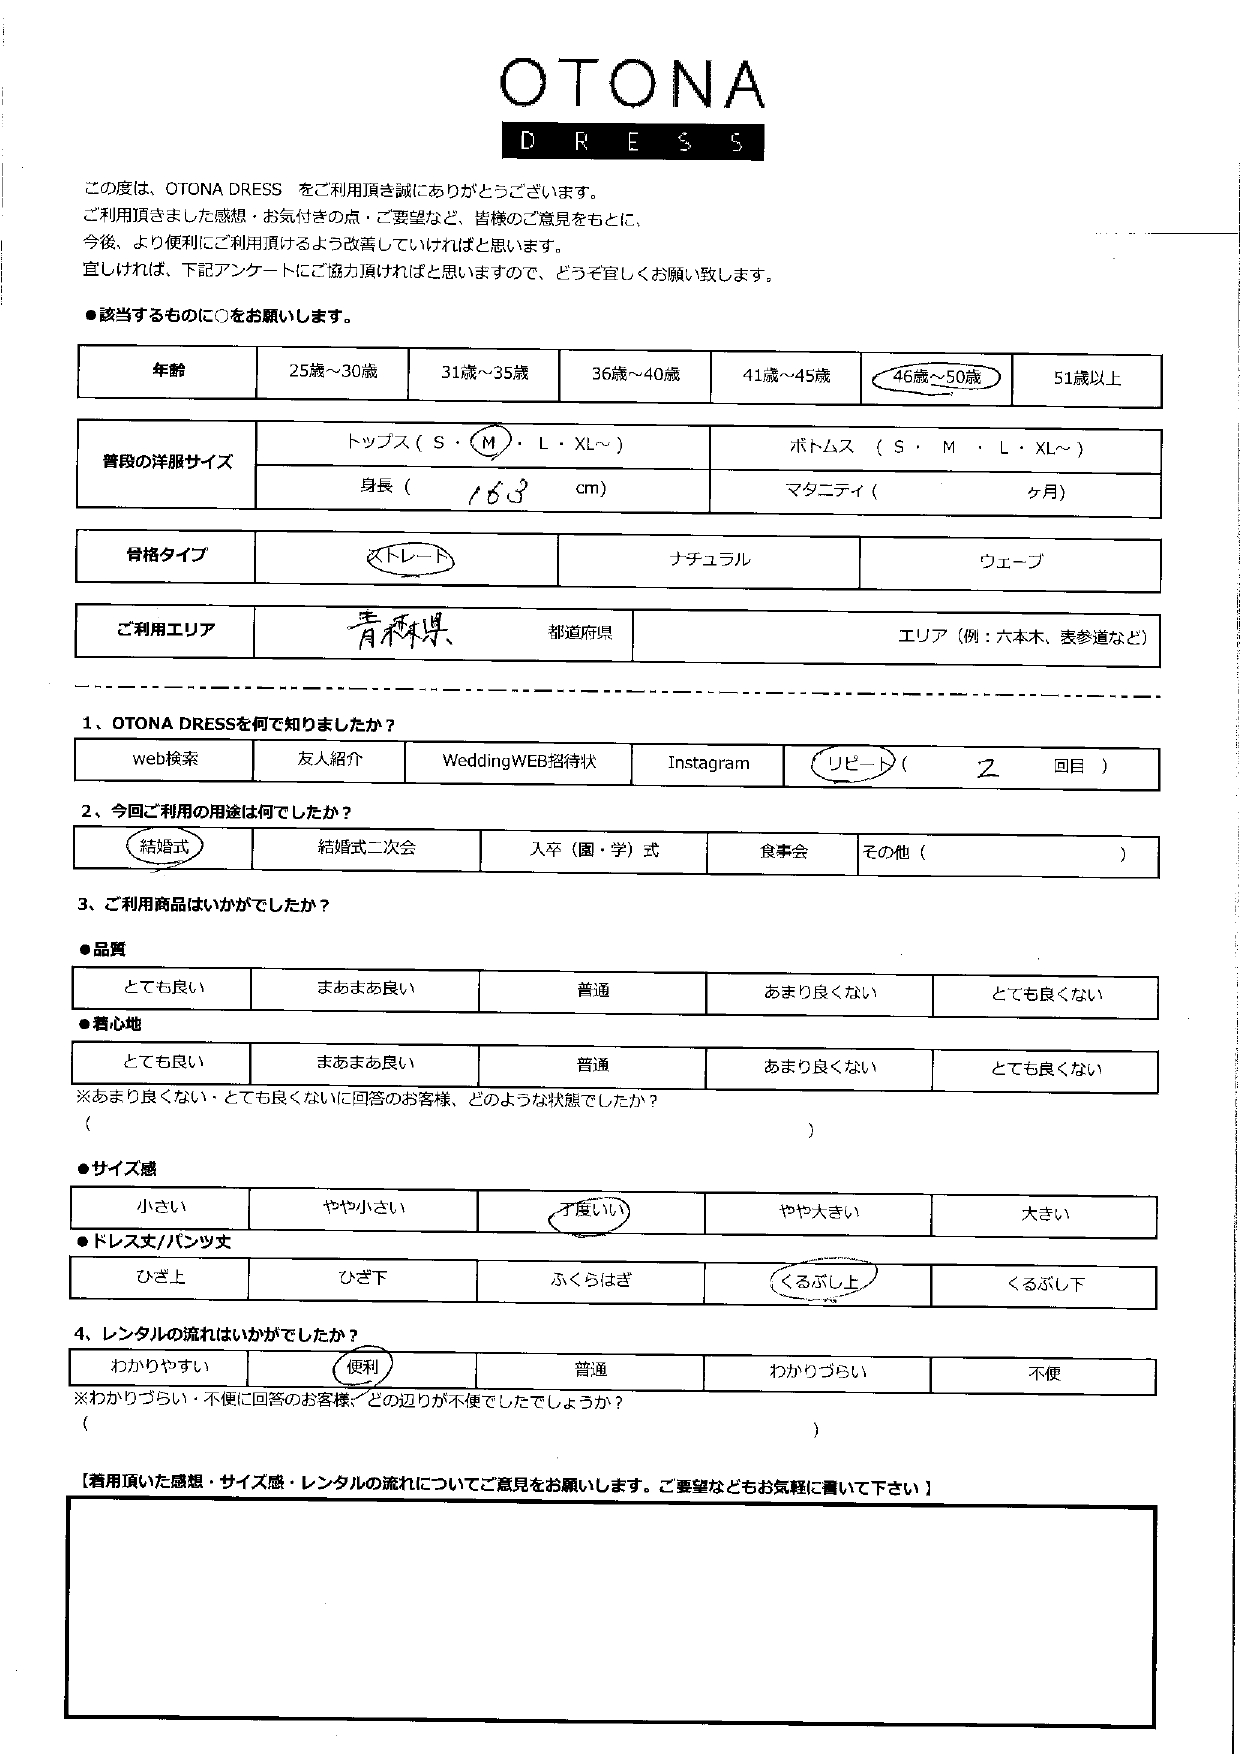 OTONA
DRESS
この度は、OTONA DRESS をご利用頂き誠にありがとうございます。
ご利用頂きました感想・お気付きの点・ご要望など、皆様のご意見をもとに、
今後、より便利にご利用頂けるよう改善していければと思います。
宜しければ、下記アンケートにご協力頂ければと思いますので、どうぞ宜しくお願い致します。
●該当するものに○をお願いします。
年齢 25歳～30歳 31歳～35歳 36歳～40歳 41歳～45歳 46歳～50歳 51歳以上
普段の洋服サイズ トップス ( S ・ M ・ L ・ XL～ ) ボトムス ( S ・ M ・ L ・ XL～ )
身長 ( 163 cm) マタニティ ( ヶ月)
骨格タイプ ストレート ナチュラル ウェーブ
ご利用エリア 青森県 都道府県 エリア（例：六本木、表参道など）
1、OTONA DRESSを何で知りましたか？
web検索 友人紹介 WeddingWEB招待状 Instagram リピート ( 2 回目 )
2、今回ご利用の用途は何でしたか？
結婚式 結婚式二次会 入卒（園・学）式 食事会 その他 ( )
3、ご利用商品はいかがでしたか？
●品質
とても良い まあまあ良い 普通 あまり良くない とても良くない
●着心地
とても良い まあまあ良い 普通 あまり良くない とても良くない
※あまり良くない・とても良くないに回答のお客様、どのような状態でしたか？
( )
●サイズ感
小さい やや小さい 丁度いい やや大きい 大きい
●ドレス丈/パンツ丈
ひざ上 ひざ下 ふくらはぎ くるぶし上 くるぶし下
4、レンタルの流れはいかがでしたか？
わかりやすい 便利 普通 わかりづらい 不便
※わかりづらい・不便に回答のお客様、どの辺りが不便でしたでしょうか？
( )
【着用頂いた感想・サイズ感・レンタルの流れについてご意見をお願いします。ご要望などもお気軽に書いて下さい】